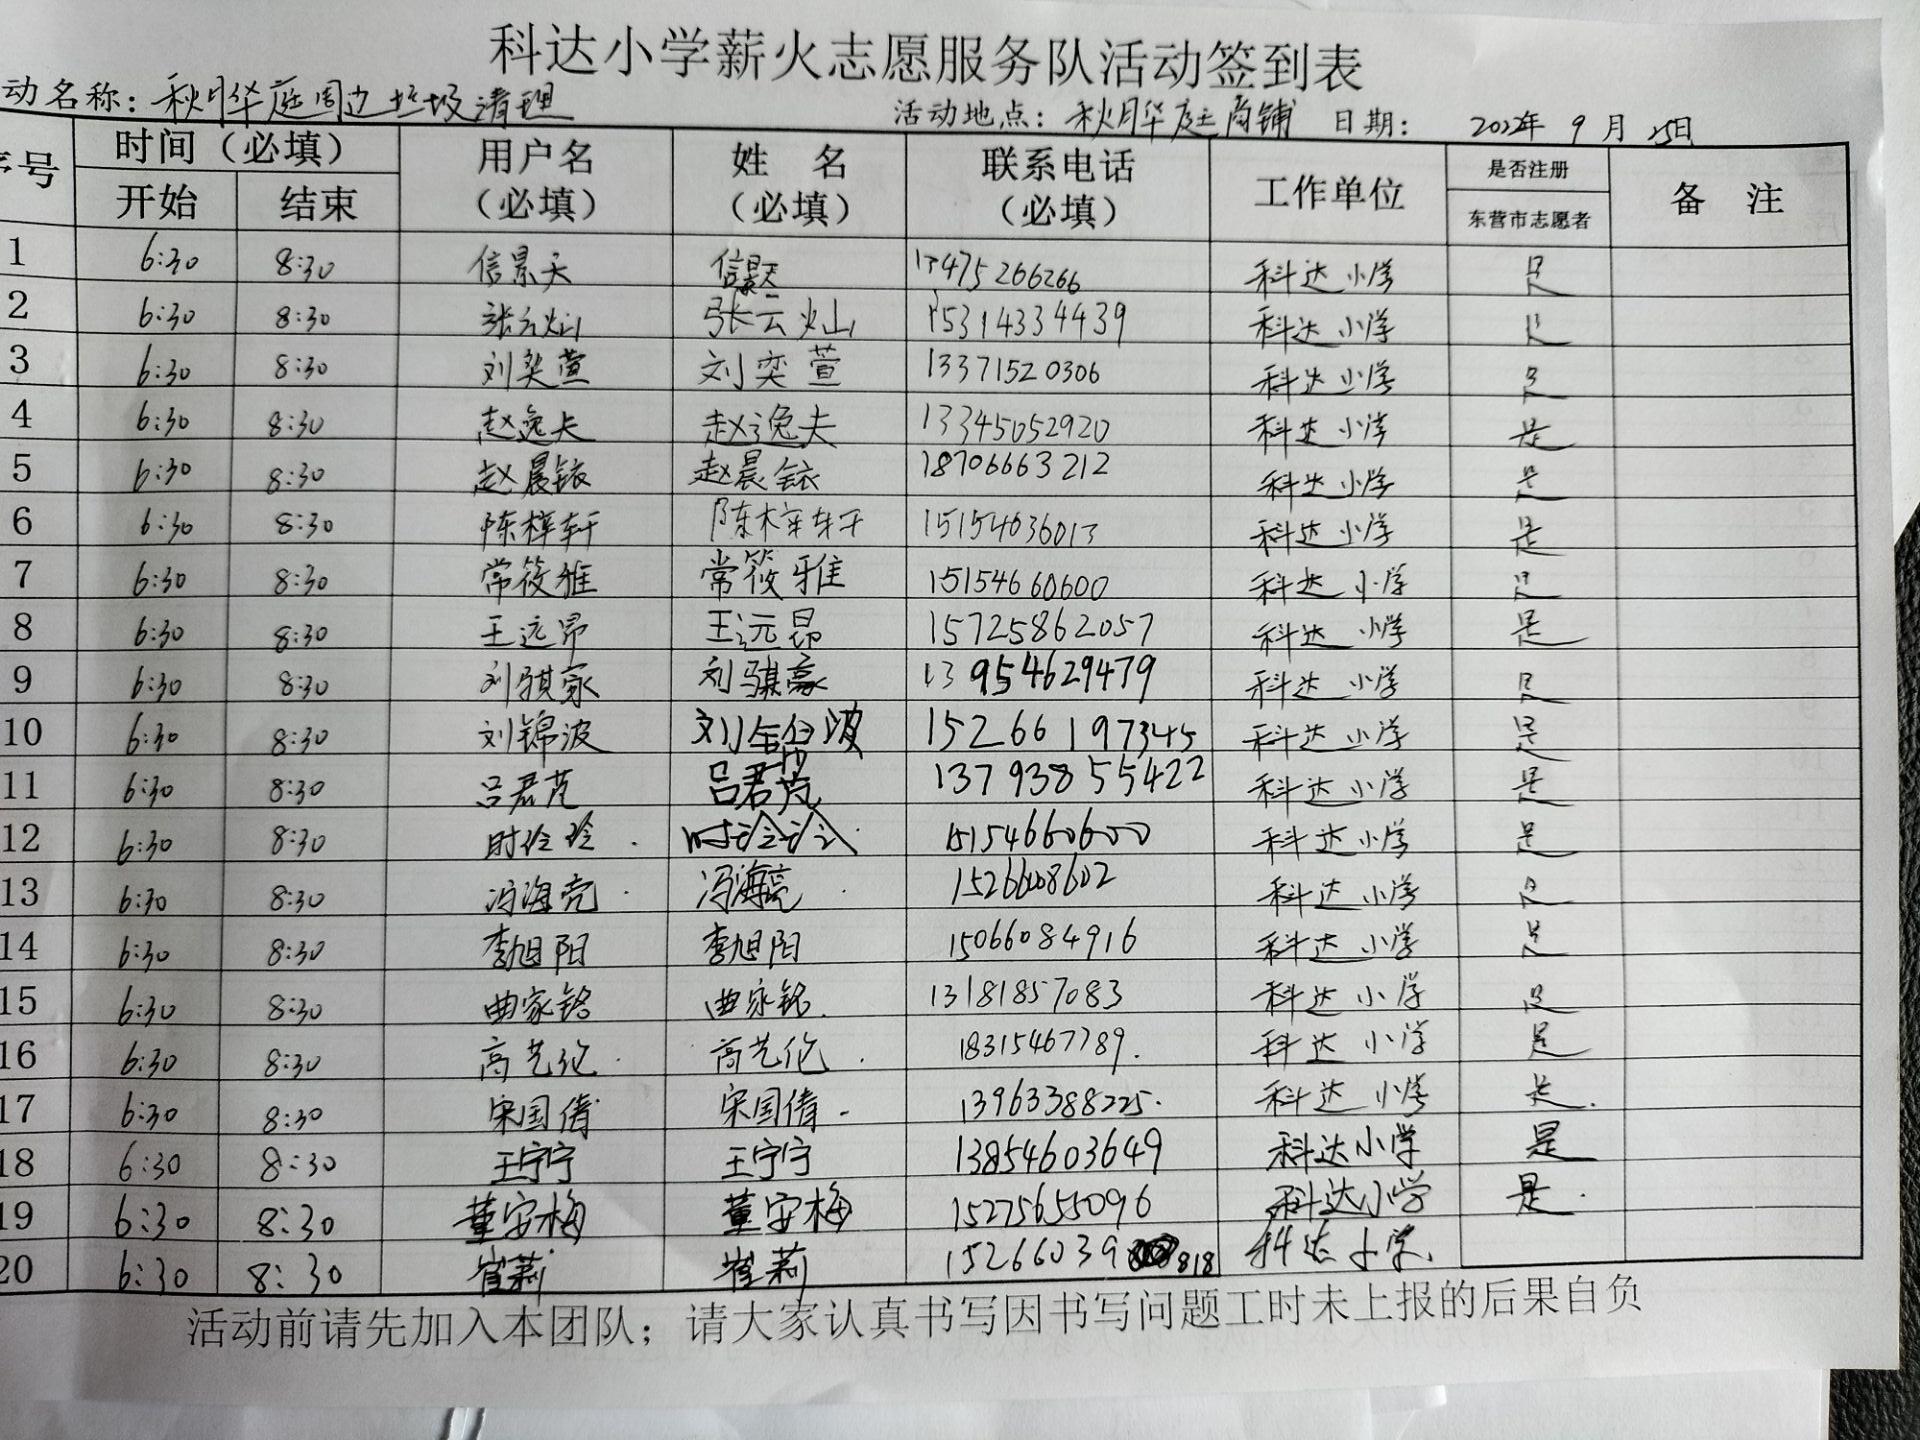 科达小学薪火志愿服务队活动签到表
动名称：秋月华庭周边垃圾清理 活动地点：秋月华庭商铺 日期：2022年 9月 25日
序号 时间（必填） 用户名（必填） 姓 名（必填） 联系电话（必填） 工作单位 是否注册 备 注
开始 结束 东营市志愿者
1 6:30 8:30 信景天 信景天 13475266266 科达小学 是
2 6:30 8:30 张云灿 张云灿 15314334439 科达小学 是
3 6:30 8:30 刘奕萱 刘奕萱 13371520306 科达小学 是
4 6:30 8:30 赵逸夫 赵逸夫 13345052920 科达小学 是
5 6:30 8:30 赵晨铱 赵晨铱 18706663212 科达小学 是
6 6:30 8:30 陈梓轩 陈梓轩 15154636013 科达小学 是
7 6:30 8:30 常筱雅 常筱雅 15154660600 科达小学 是
8 6:30 8:30 王远昂 王远昂 15725862057 科达小学 是
9 6:30 8:30 刘骐豪 刘骐豪 13954629479 科达小学 是
10 6:30 8:30 刘锦波 刘锦波 15266197345 科达小学 是
11 6:30 8:30 吕君茂 吕君茂 13793855422 科达小学 是
12 6:30 8:30 时玲玲 15154660600 科达小学 是
13 6:30 8:30 冯海亮 冯海亮 15266008602 科达小学 是
14 6:30 8:30 李旭阳 李旭阳 15066084916 科达小学 是
15 6:30 8:30 曲家铭 曲家铭 13181857083 科达小学 是
16 6:30 8:30 高艺伦 高艺伦 18315467789. 科达小学 是
17 6:30 8:30 宋国倩 宋国倩 13963388225. 科达小学 是.
18 6:30 8:30 王宁宁 王宁宁 13854603649 科达小学 是
19 6:30 8:30 董安梅 董安梅 15275655096 科达小学 是.
20 6:30 8:30 崔莉 崔莉 15266039818 科达小学.
活动前请先加入本团队；请大家认真书写因书写问题工时未上报的后果自负